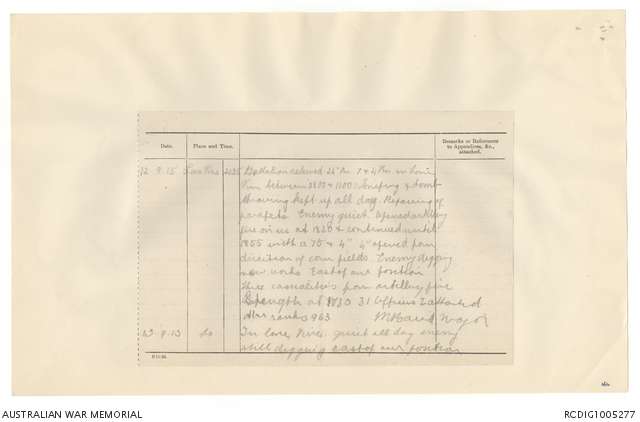 Date.
Place and Time.
Remarks or References
to Appendices, &c.,
attached.
12. 9. 15 Lone Pine 2125 Battalion relieved 24th Bn
between 0800 & 1100. Sniping & bomb
throwing kept up all day. Repairing of
parapets. Enemy quiet opened artillery
fire on us at 1830 & continued until
1855 with a 75 & 4" 4" opened from
direction of corn fields. Enemy digging
new works East of our position
three casualties from artillery fire
Strength at 1830 31 Officers 2 attached
other ranks 963 Major
13. 9. 15 do In Lone Pine. quiet all day enemy
still digging east of our position
AUSTRALIAN WAR MEMORIAL
RCDIG1005277